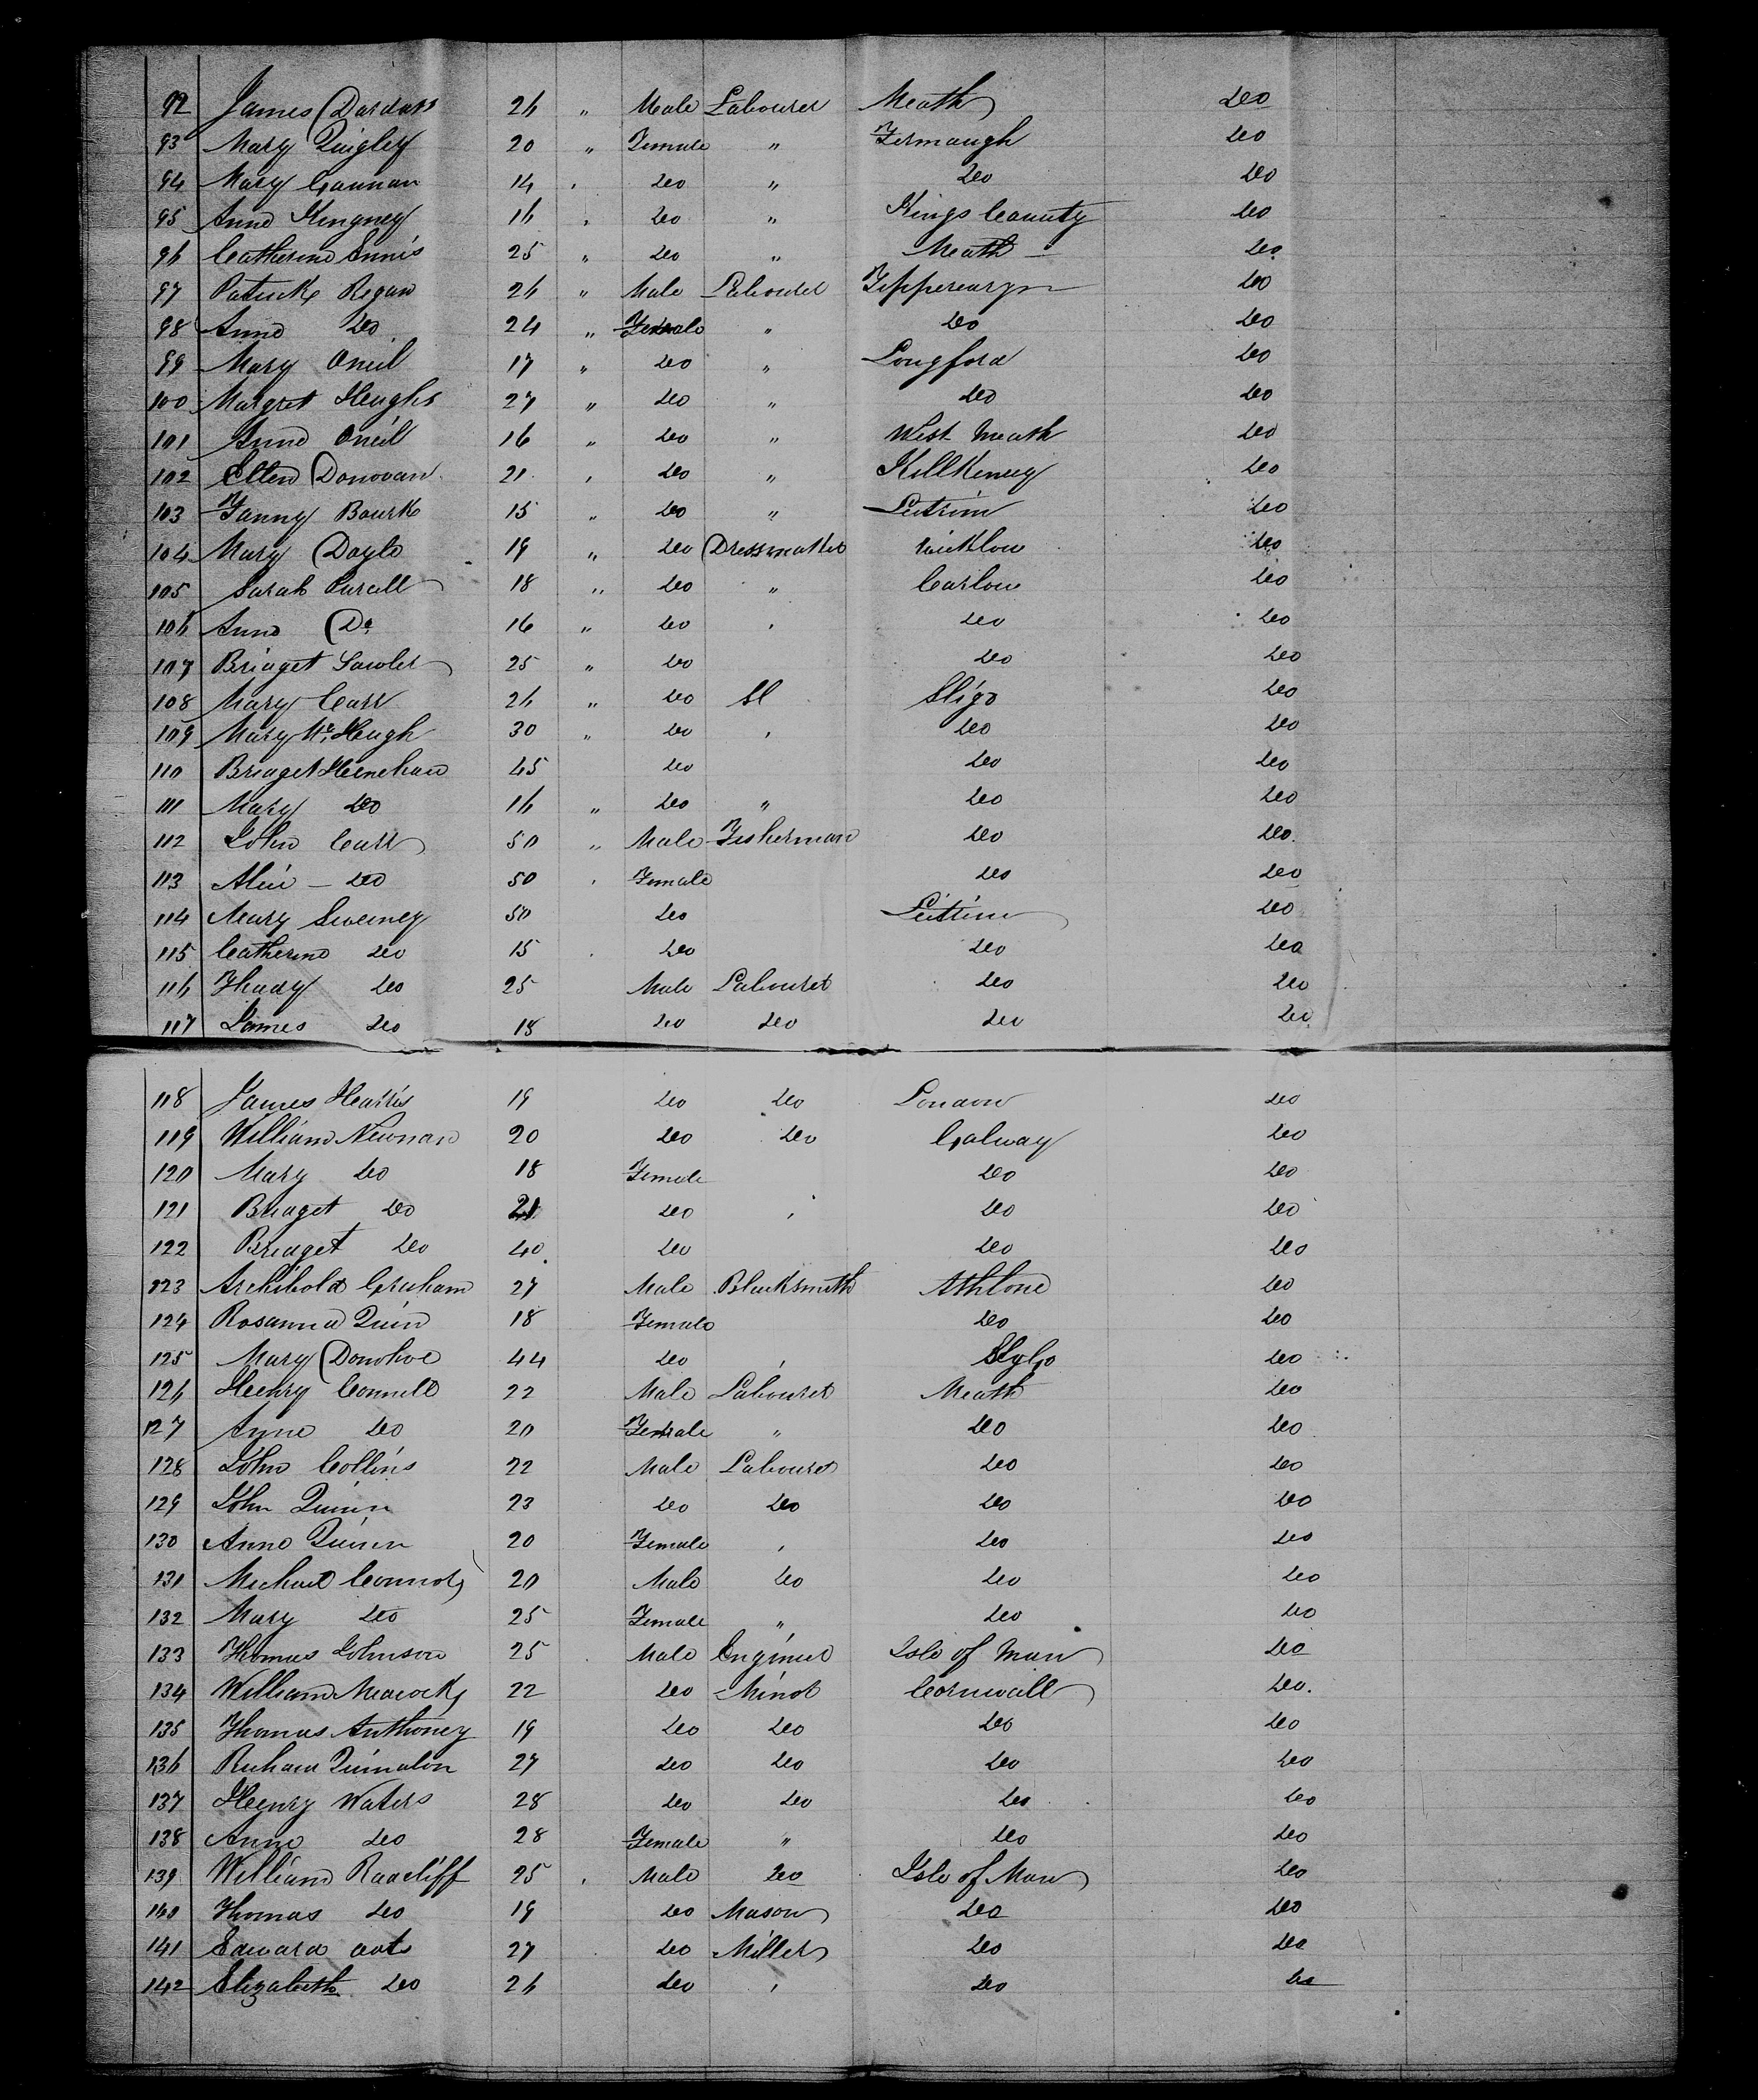 92 James Dardars 26 " Male Labourer Meath Deo
93 Mary Quigley 20 " Female " Fermaugh Deo
94 Mary Gannan 14 " Deo " Deo Deo
95 Anne Kingney 16 " Deo " Kings County Deo
96 Catherine Ennis 25 " Deo " Meath Deo
97 Patrick Regan 26 " Male Labourer Tipperary Deo
98 Anne Deo 24 " Female " Deo Deo
99 Mary Oneil 17 " Deo " Longford Deo
100 Margret Heughs 27 " Deo " Deo Deo
101 Anne Oneil 16 " Deo " West Meath Deo
102 Ellen Donovan 21 " Deo " Killkenny Deo
103 Fanny Bourke 15 " Deo " Leitrim Deo
104 Mary Doyle 19 " Deo Dressmaker Wicklow Deo
105 Sarah Purcell 18 " Deo " Carlow Deo
106 Anne Do 16 " Deo " Deo Deo
107 Bridget Lawler 25 " Deo Deo Deo
108 Mary Carr 26 " Deo Sl Sligo Deo
109 Mary McHeugh 30 " Deo " Deo Deo
110 Bridget Heenehan 45 Deo Deo Deo
111 Mary Deo 16 " Deo " Deo Deo
112 John Carr 50 " Male Fisherman Deo Deo
113 Deo 50 Female Deo Deo
114 Mary Sweeney 50 Deo Leitrim Deo
115 Catherine Deo 15 Deo Deo Deo
116 Thady Deo 25 Male Labourer Deo Deo
117 James Deo 18 Deo Deo Deo Deo
118 James Harris 19 Deo Deo London Deo
119 William Newman 20 Deo Deo Galway Deo
120 Mary Deo 18 Female Deo Deo
121 Bridget Deo 21 Deo " Deo Deo
122 Bridget Deo 40 Deo Deo Deo
123 Archibold Graham 27 Male Blacksmith Athlone Deo
124 Rosanna Quin 18 Female Deo Deo
125 Mary Donohoe 44 Deo " Slygo Deo
126 Henry Connell 22 Male Labourer Meath Deo
127 Anne Deo 20 Female " Deo Deo
128 John Collins 22 Male Labourer Deo Deo
129 John Quinn 23 Deo Deo Deo Deo
130 Anne Quinn 20 Female " Deo Deo
131 Michael Connoly 20 Male Deo Deo Deo
132 Mary Deo 25 Female " Deo Deo
133 Thomas Johnson 25 Male Engineer Isle of Man Deo
134 William Meacock 22 Deo Miner Cornwall Deo
135 Thomas Anthoney 19 Deo Deo Deo Deo
136 Richard 27 Deo Deo Deo Deo
137 Henry Waters 28 Deo Deo Deo Deo
138 Anne Deo 28 Female " Deo Deo
139 William Radcliff 25 Male Deo Isle of Man Deo
140 Thomas Deo 19 Deo Mason Deo Deo
141 Edward 27 Deo Miller Deo Deo
142 Elizabeth Deo 26 Deo " Deo Deo